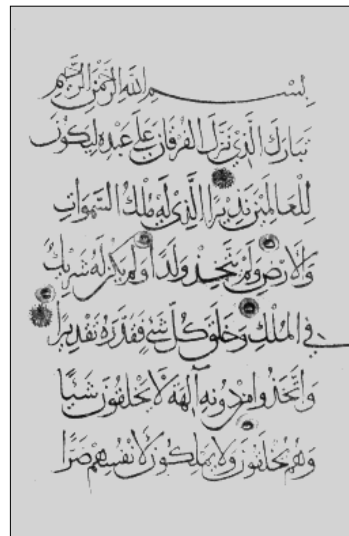 بِسْمِ اللهِ الرَّحْمٰنِ الرَّحِيْمِ
تَبَارَكَ الَّذِيْ نَزَّلَ الفُرْقَانَ عَلَى عَبْدِهِ لِيَكُوْنَ
لِلْعَالَمِيْنَ نَذِيْرًا الَّذِيْ لَهُ مُلْكُ السَّمَوَاتِ
وَالْاَرْضِ وَلَمْ يَتَّخِذْ وَلَدًا وَلَمْ يَكُنْ لَهُ شَرِيْكٌ
فِي المُلْكِ وَخَلَقَ كُلَّ شَيْءٍ فَقَدَّرَهُ تَقْدِيْرًا
وَاتَّخَذُوا مِنْ دُونِهِ آلِهَةً لَا يَخْلُقُوْنَ شَيْئًا
وَهُمْ يُخْلَقُوْنَ وَلَا يَمْلِكُوْنَ لِاَنْفُسِهِمْ ضَرًّا